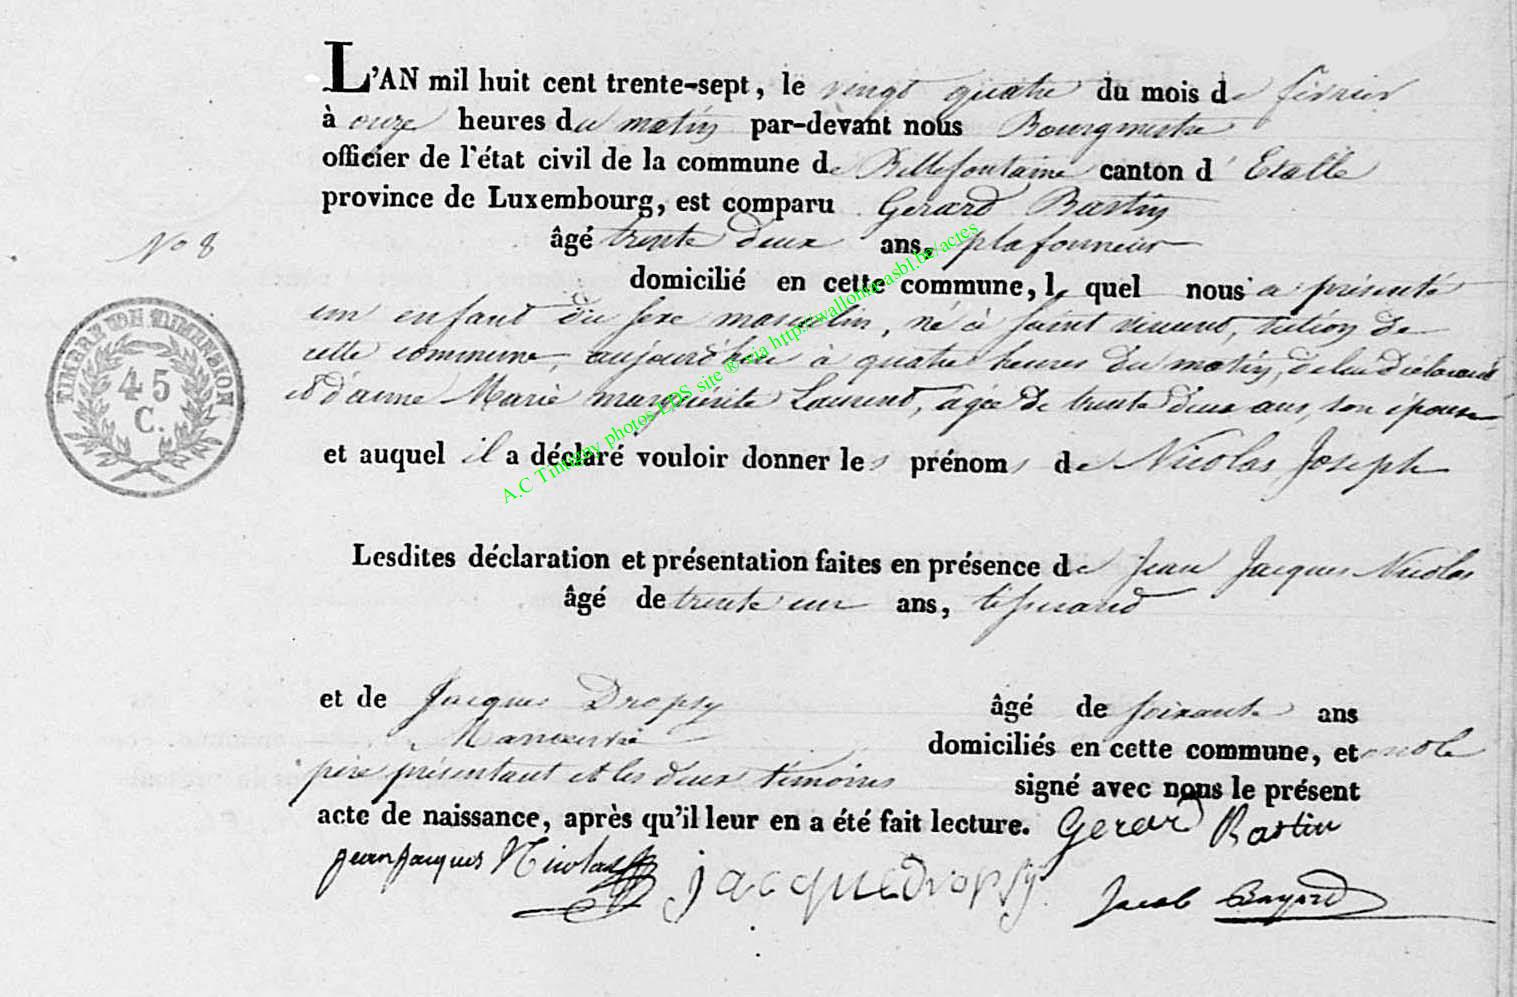 L'AN mil huit cent trente-sept, le vingt quatre du mois de février
à onze heures du matin par-devant nous Bourgmestre
officier de l'état civil de la commune de Bellefontaine canton d'Etalle
province de Luxembourg, est comparu Gerard Bastin
No 8
âgé trente deux ans, plafonneur
domicilié en cette commune, lequel nous a présenté
un enfant du sexe masculin, né à Saint vincent section de
cette commune, aujourd'hui à quatre heures du matin, de lui déclarant
et d'anne Marie marguerite Laurent, agée de trente deux ans, son épouse
et auquel il a déclaré vouloir donner les prénoms de Nicolas Joseph
TIMBRE DE DIMENSION
45
C.
A.C Tintigny photos EDS site ® via http://wallonia-asbl.be/actes
Lesdites déclaration et présentation faites en présence de Jean Jacques Nicolas
âgé de trente un ans, tisserand
et de Jacques Dropsy âgé de soixante ans
domiciliés en cette commune, et ont le
père présentant et les deux témoins signé avec nous le présent
acte de naissance, après qu'il leur en a été fait lecture. Gerard Bastin
jean jacques Nicolas jacque dropsy Jacob Bayard